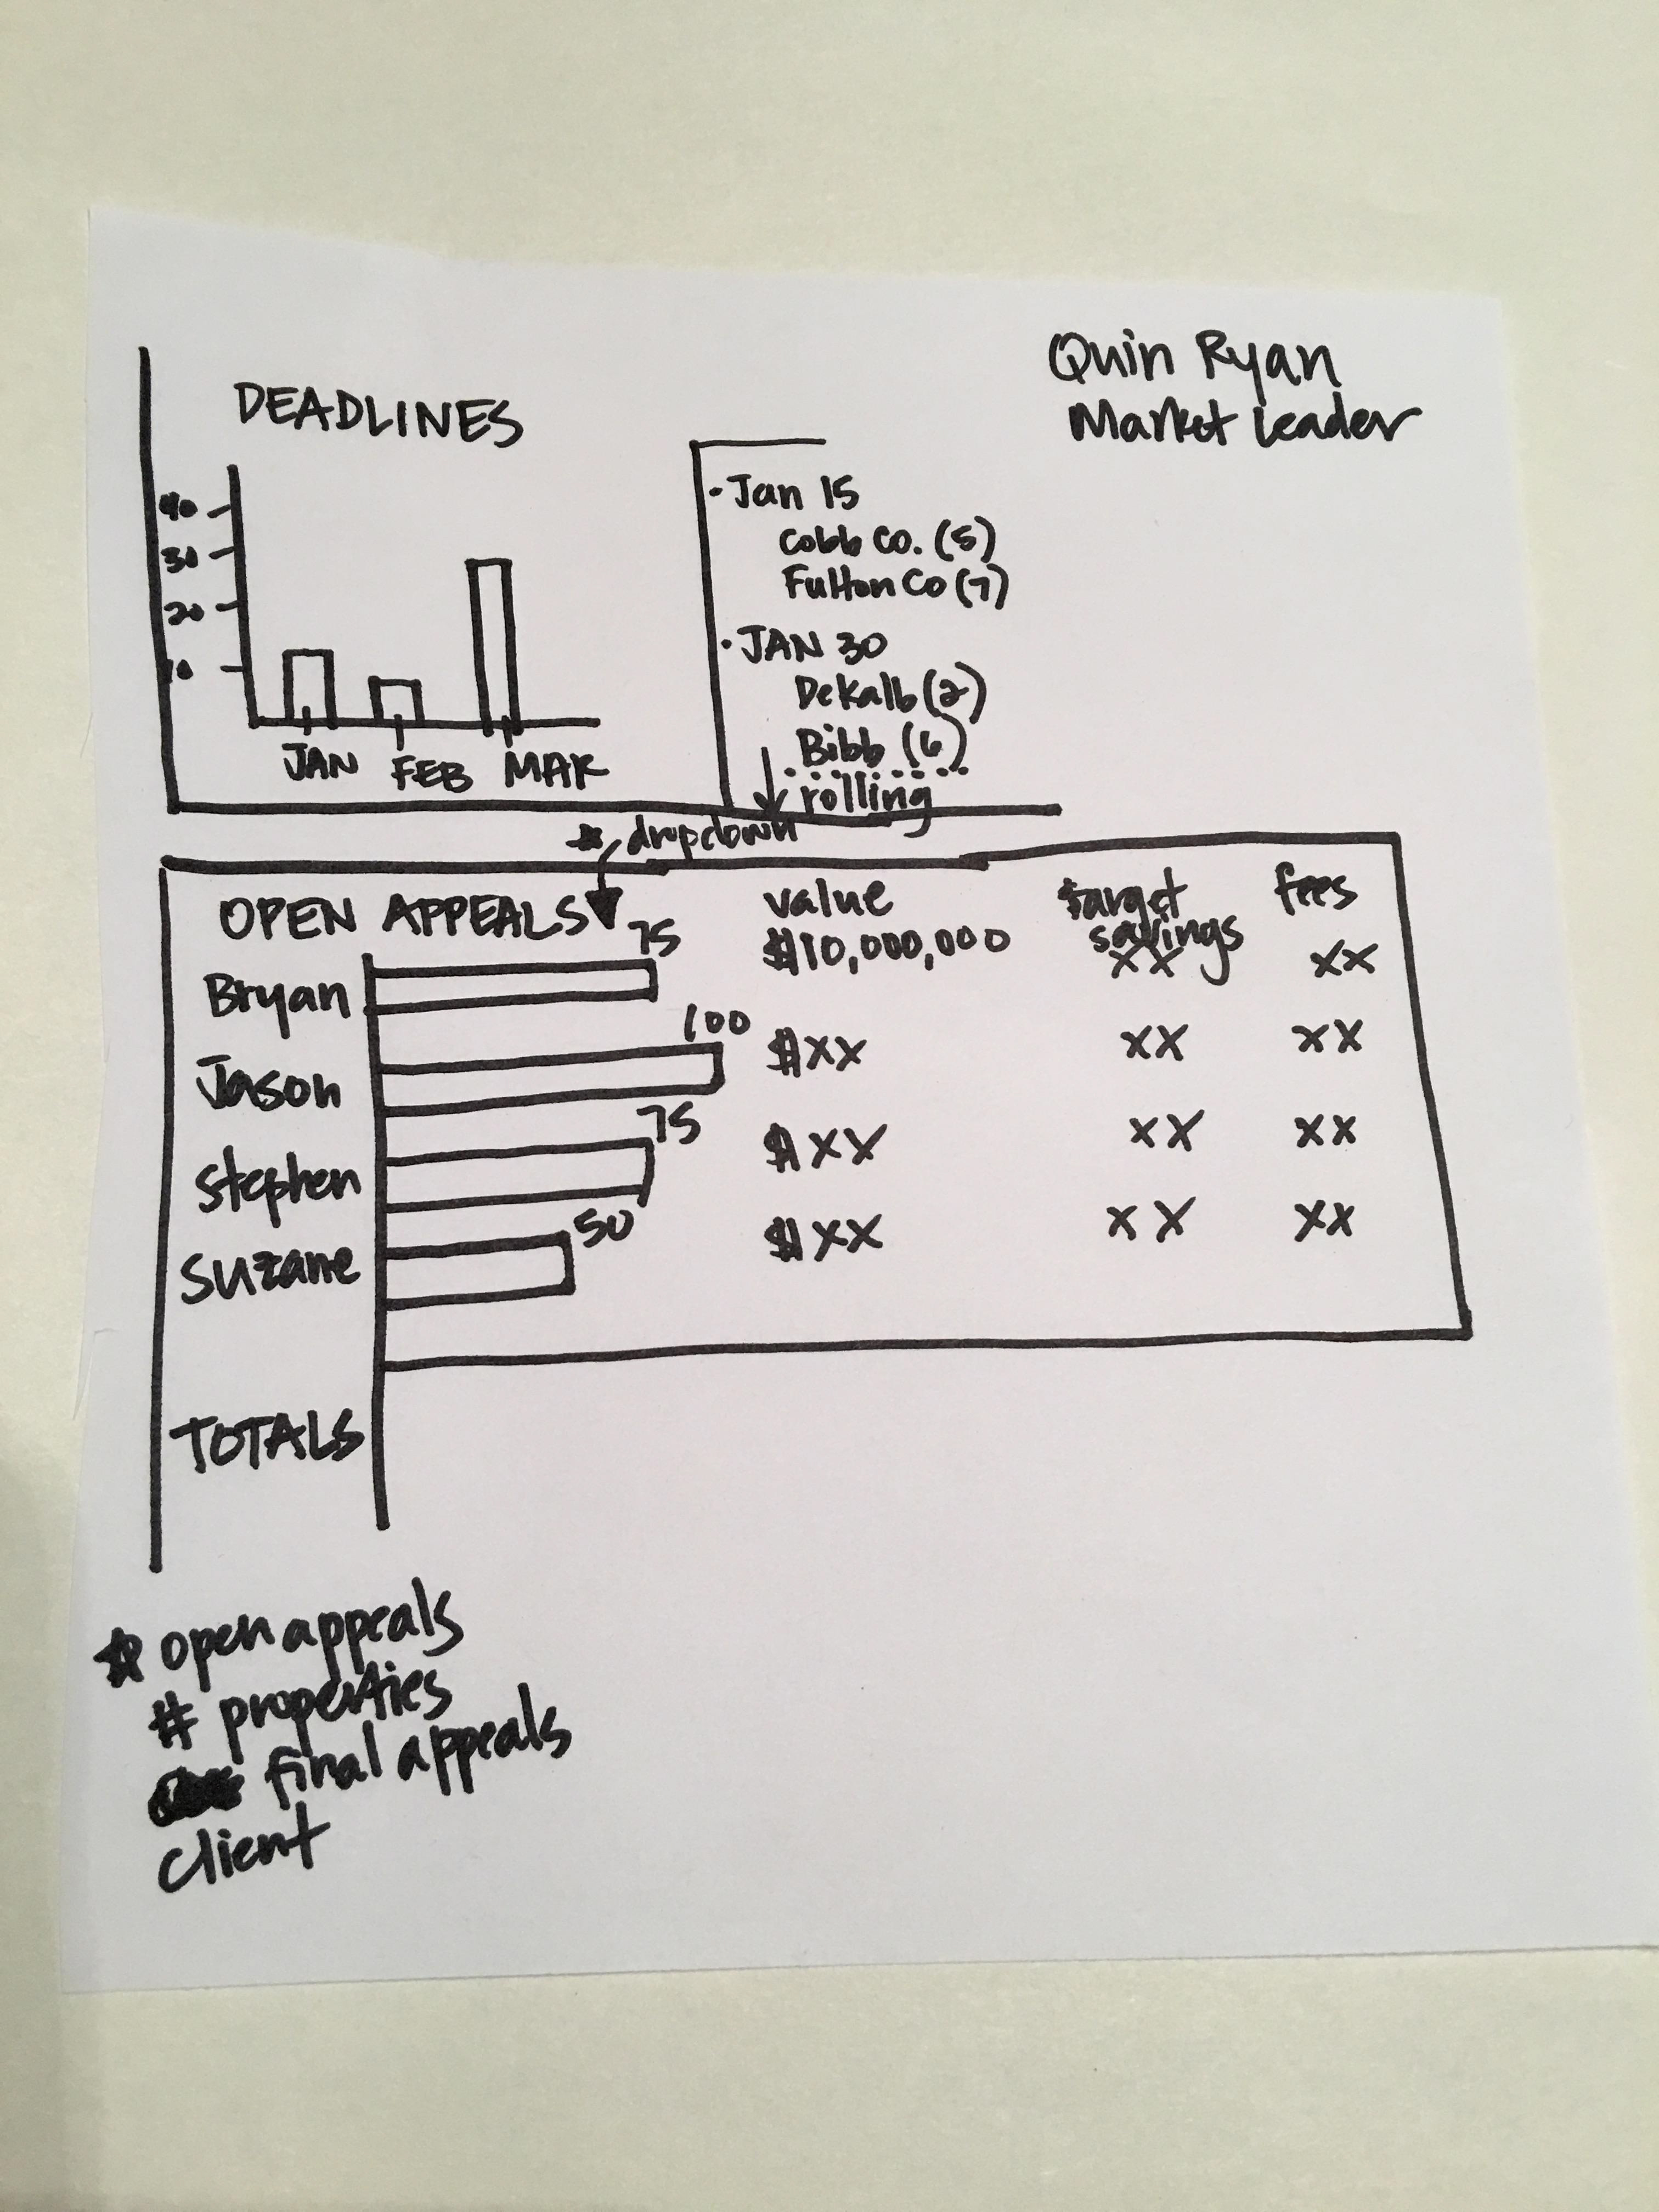 Quin Ryan
Market Leader
DEADLINES
40
30
20
10
JAN FEB MAR
· Jan 15
Cobb Co. (5)
Fulton Co (7)
· JAN 30
DeKalb (2)
Bibb (6)
rolling
* dropdown
OPEN APPEALS value target savings fees
Bryan 75 $10,000,000 XX XX
Jason 100 $XX XX XX
Stephen 75 $XX XX XX
Suzanne 50 $XX XX XX
TOTALS
* open appeals
# properties
final appeals
client